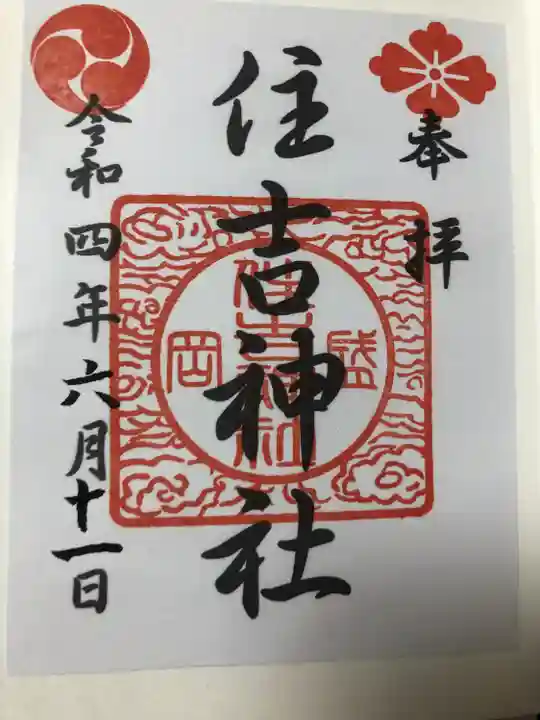 奉拝
住吉神社
盛岡
住吉神社
令和四年六月十一日